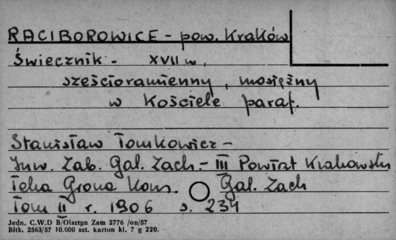 RACIBOROWICE - pow. Kraków
Świecznik - XVII w.
sześcioramienny, mosiężny
w Kościele paraf.
Stanisław Tomkowicz -
Inw. Zab. Gal. Zach. - III Powiat Krakowski
Teka Grona Kons. Gal. Zach
Tom II r. 1906 s. 234
Jedn. C.W.D B/Olsztyn Zam 2776 /on/57
Błtk. 2563/57 10.000 szt. karton kl. 7 g 220.